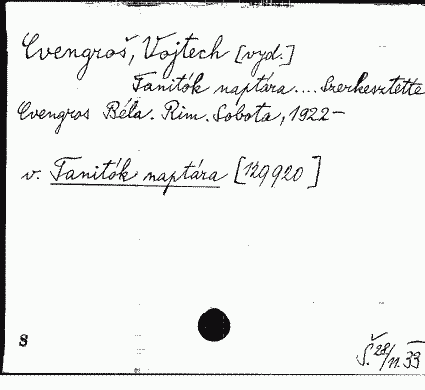 Cvengroš, Vojtech [vyd.]
Tanitók naptára.... Szerkesztette
Cvengros Béla. Rim. Sobota, 1922-
v. Tanitók naptára [129920]
8
Š. 28/11. 33